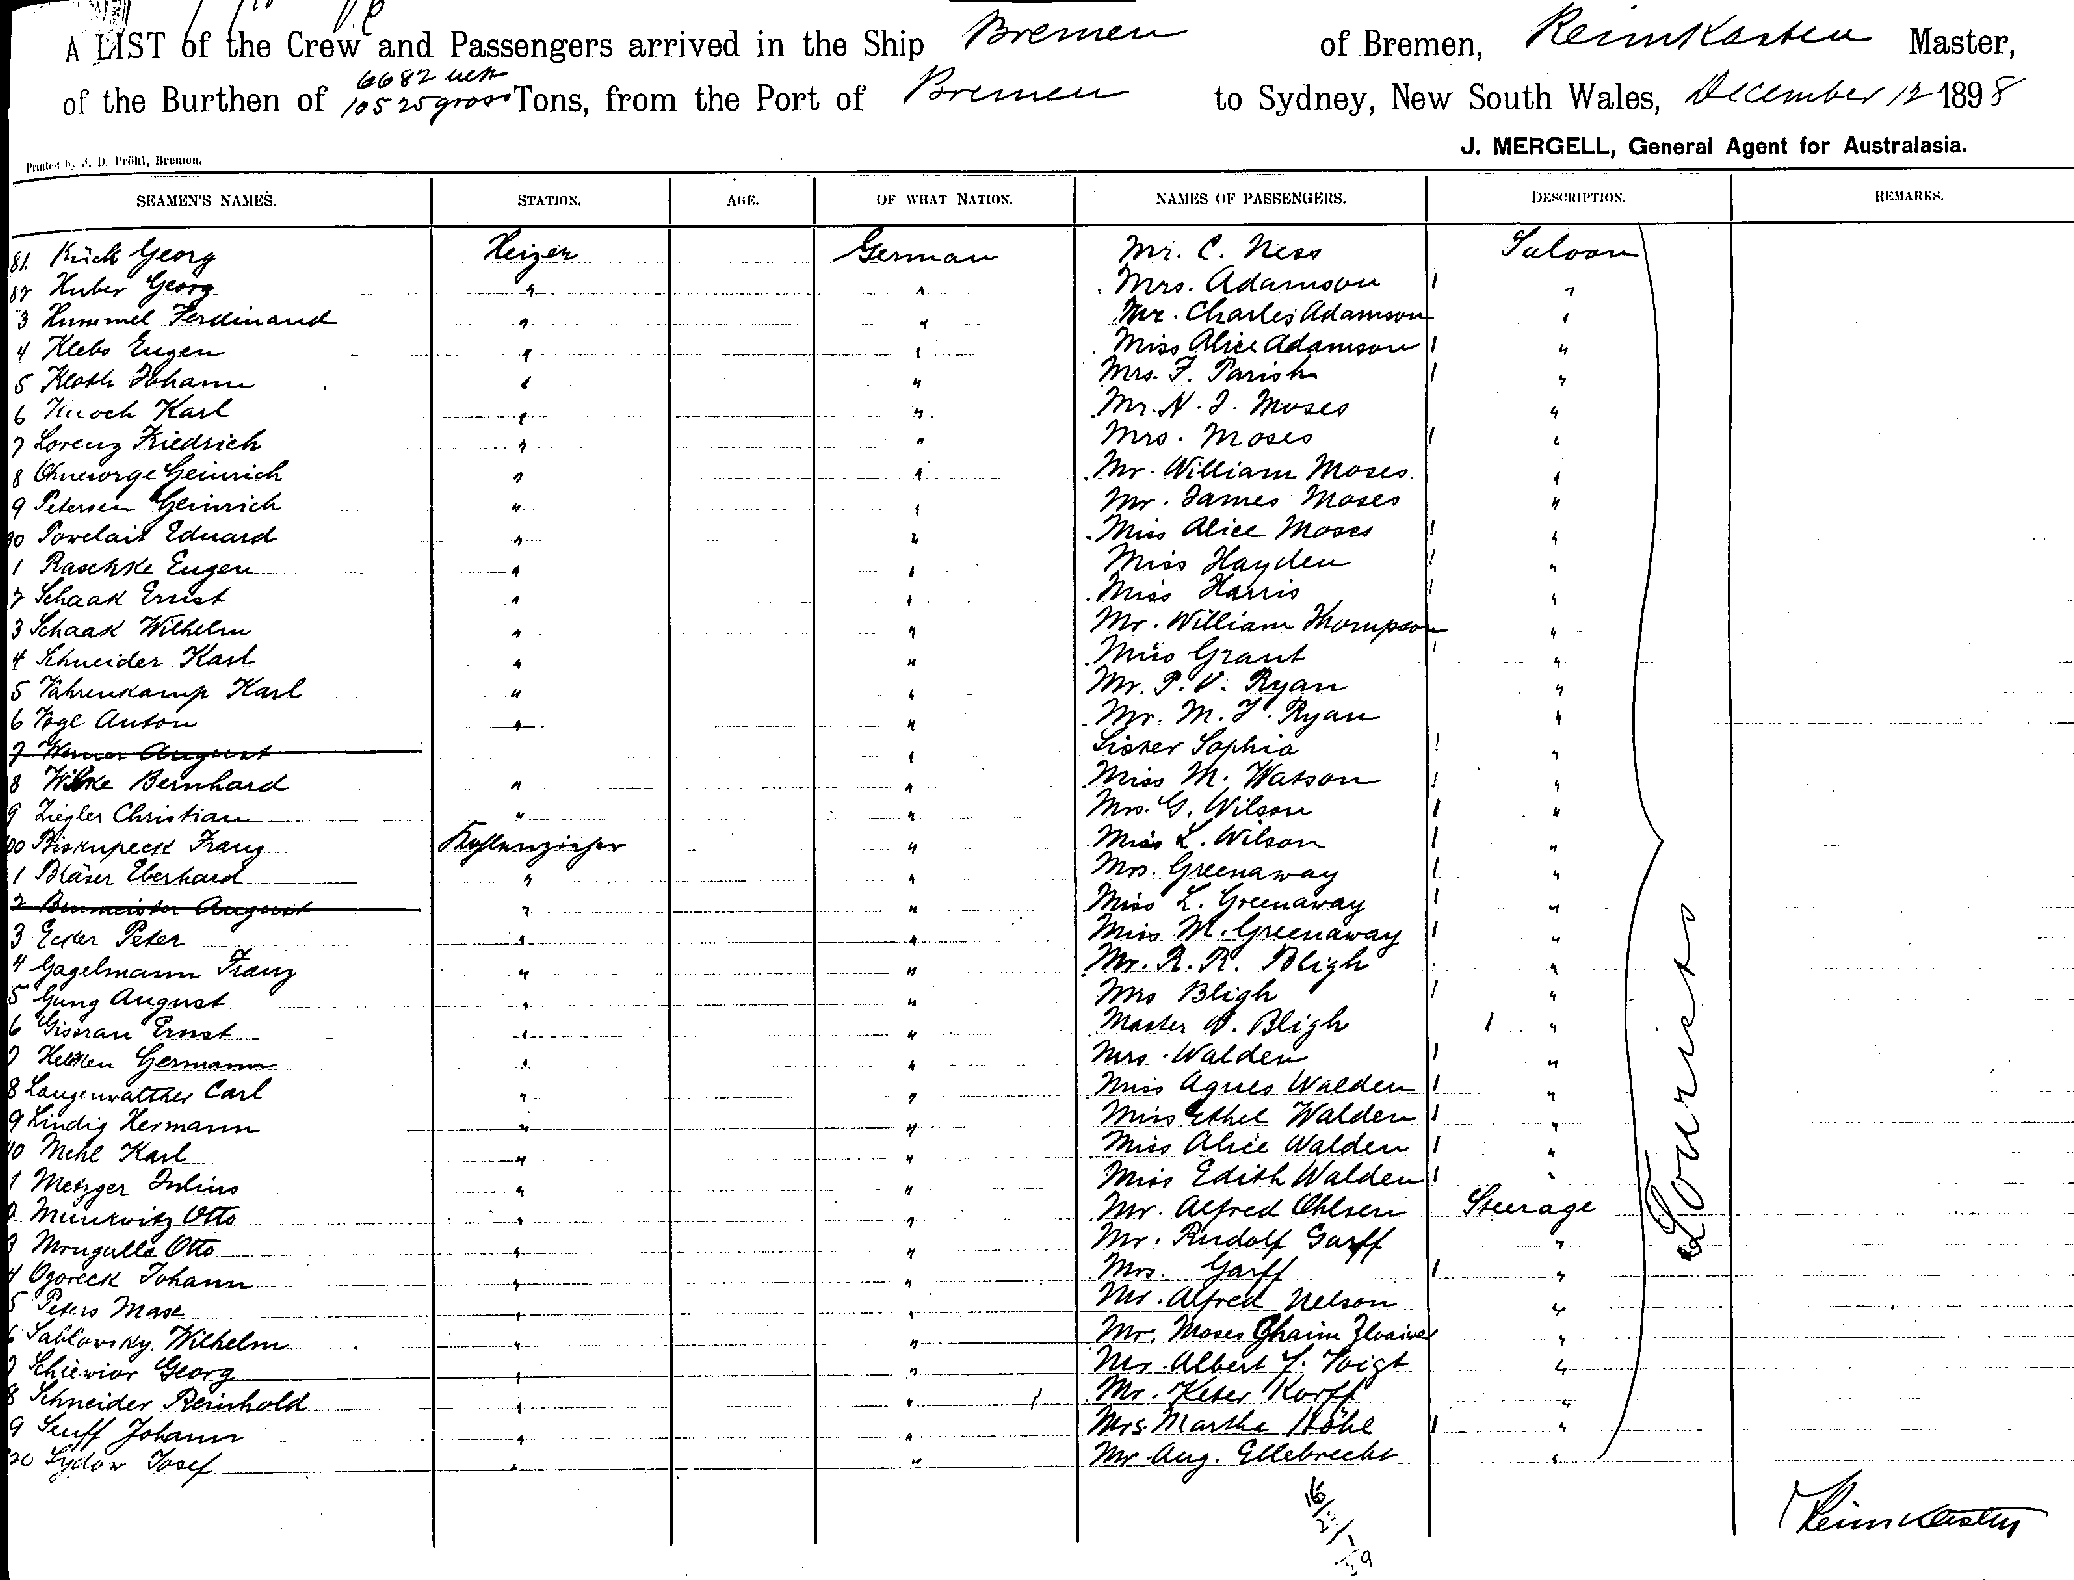 A LIST of the Crew and Passengers arrived in the Ship Bremen of Bremen, Reimkasten Master,
6682 nett
of the Burthen of 10525 gross Tons, from the Port of Bremen to Sydney, New South Wales, December 12 1898
J. MERGELL, General Agent for Australasia.
Printed by J. D. Pröhl, Bremen.
SEAMEN'S NAMES. STATION. AGE. OF WHAT NATION. NAMES OF PASSENGERS. DESCRIPTION. REMARKS.
81. Kück Georg Heizer German Mr. C. Ness Saloon
82 Huber Georg " " Mrs. Adamson "
3 Hummel Ferdinand " " Mr. Charles Adamson "
4 Klebs Eugen " " Miss Alice Adamson "
5 Kloth Johann " " Mrs. F. Parish "
6 Knoch Karl " " Mr. N. J. Moses "
7 Lorenz Friedrich " " Mrs. Moses "
8 Ohnesorge Heinrich " " Mr. William Moses "
9 Petersen Heinrich " " Mr. James Moses "
90 Eduard " " Miss Alice Moses "
1 Raschke Eugen " " Miss Hayden "
2 Schaak Ernst " " Miss Harris "
3 Schaak Wilhelm " " Mr. William Thompson "
4 Schneider Karl " " Miss Grant "
5 Vahrenkamp Karl " " Mr. P. V. Ryan "
6 Vogl Anton " " Mr. M. J. Ryan "
7 Werner August " Sister Sophia "
8 Wilke Bernhard " " Miss M. Watson "
9 Ziegler Christian " " Mrs. G. Wilson "
100 Biskupeck Franz Kohlenzieher " Miss L. Wilson "
1 Bläser Eberhard " " Mrs. Greenaway "
2 August " " Miss L. Greenaway "
3 Ecker Peter " " Miss M. Greenaway "
4 Gagelmann Franz " " Mr. R. R. Bligh "
5 Gung August " " Mrs Bligh "
6 Ernst " " Master Bligh "
7 Hermann " " Mrs. Walden "
8 Langenwalther Carl " " Miss Agnes Walden "
9 Lindig Hermann " " Miss Ethel Walden "
10 Mehl Karl " " Miss Alice Walden "
1 Metzger Julius " " Miss Edith Walden "
2 Munkvitz Otto " " Mr. Alfred Ohlsen Steerage
3 Mongalla Otto " " Mr. Rudolf Garff "
4 Ogoreck Johann " " Mrs. Garff "
5 Peters " " Mr. Alfred Nelson "
6 Sablowsky Wilhelm " " Mr. Moses Chaim "
7 Schiewior Georg " " Mr. Albert F. Voigt "
8 Schneider Reinhold " " Mr. Peter Korff "
9 Senff Johann " " Mrs. Martha Höhl "
20 Sydow Josef " " Mr. Aug. Ellebrecht "
Tourists
Reimkasten